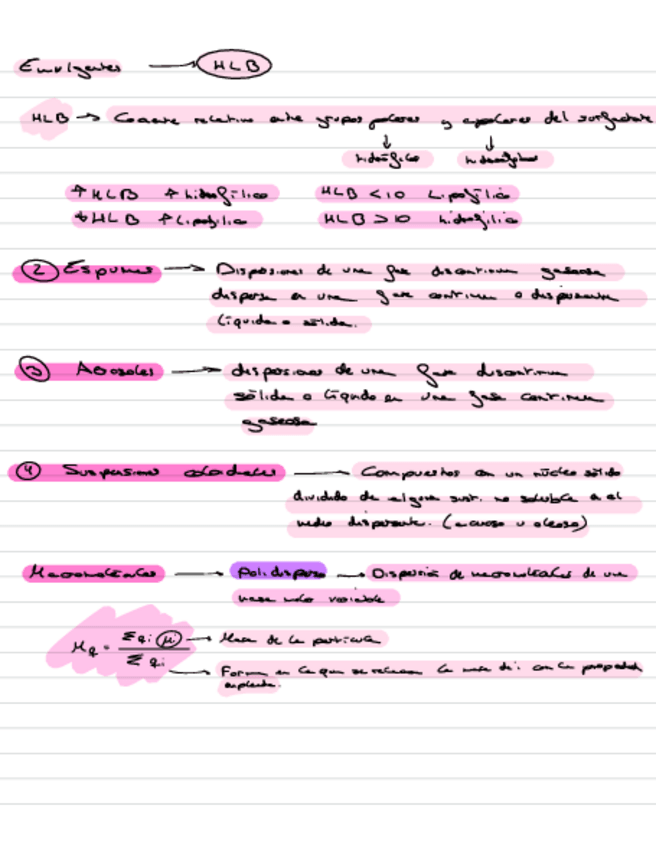 Emulgentes → HLB
HLB → Cociente relativo entre grupos polares y apolares del surfactante
↓ ↓
hidrófilo hidrófobos
↑ HLB ↑ hidrofílico HLB < 10 Lipofílico
↓ HLB ↑ Lipofílico HLB > 10 hidrofílico
② Espumas → Dispersiones de una fase discontinua gaseosa
dispersa en una fase continua o dispersante
líquida o sólida.
③ Aerosoles → dispersiones de una fase discontinua
sólida o líquida en una fase continua
gaseosa
④ Suspensiones coloidales → Compuestos con un núcleo sólido
dividido de alguna sust. no soluble en el
medio dispersante. (acuoso u oleoso)
Macromoléculas → Polidispersa → Dispersión de macromoléculas de una
masa molar variable
Mq = Σ qi Mi → Masa de la partícula
Σ qi → Forma en la que se relaciona la masa de i con la propiedad